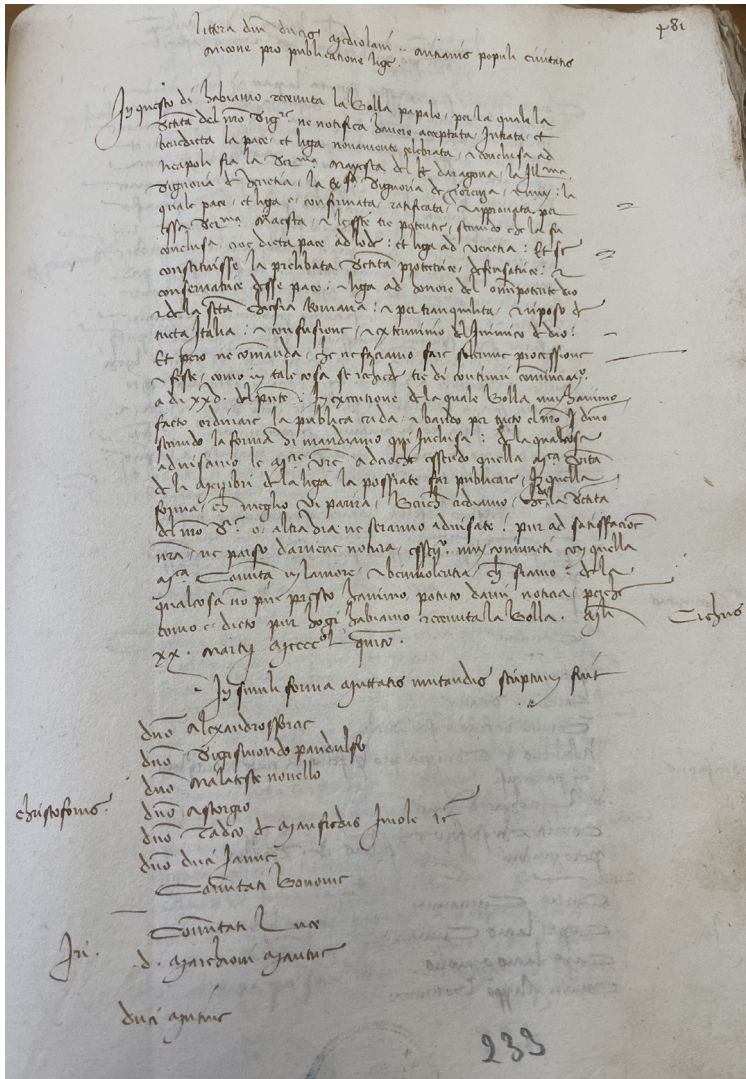 481
littera dni ducis Mediolani .. antianis populi civitatis
Ancone pro publicatione lige.
In questo di habiamo recevuta la Bolla papale, per la quale la
Stita del nro Sigre ne notifica havere aceptata, intrata, et
benedicta la pace, et liga novamente celebrata, et conclusa ad
Neapoli fra la Serma Maiesta del Re daragona, la Illma
Signoria de Venetia, la Exsa Signoria de Fiorenza, et nuy: la
quale pace, et liga e, confirmata, ratificata, et approvata per
essa Serma Maesta, et le sse tre potentie, secundo che la fu
conclusa, cioe dicta pace ad lode: et liga ad Venetia: Et se
constituisse la prelibata Stita protectrice, defensatrice: et
conservatrice desse pace: et liga ad honore del omnipotente dio
et de la Scta Chiesia Romana: et per tranquilita, et riposo de
tucta Italia: et confusione, et exterminio del Inimico de dio:
Et pero ne comanda, che ne faciamo fare solenne processione
et feste, como in tale cosa se rechiede tre di continui
a di xxv. del pnte: In executione de la quale Bolla nuy havimo
facto ordinare la publica crida, et bando per tucto el nro
secundo la forma di mandiamo qui inclusa: de la qualcosa
advisiamo le Mcie vre adcioche essendo quella Mca Comta
de li membri de la liga la possiate far publicare, in quella
forma, che meglio vi parira, Benche crediamo, che la Stita
del nro Sre o, altra via ne seranno advisate: pur ad satisfactioe
nra, ne parso darvene noticia, essendo nuy coniuncti con quella
Mca Comita in lamore, et benivolentia, che siamo: de la
qualcosa non piu presto havimo potuto darvi noticia, perche
como e dicto pur hogi habiamo recevuta la Bolla. Mli
Cichus
xx. Martii Mcccco L quinto.
In simili forma Mutatis mutandis scriptum fuit
dno Alexandro sforcie
dno Sigismondo pandulfo
dno Malateste novello
Christoforus.
dno Astorgio
dno Tadeo de Manfredis Imole etc
dno duci Janue
Comitati Bononie
Comitati Luce
Iri.
.d. Marchioni Mantue
duci Mutine
233